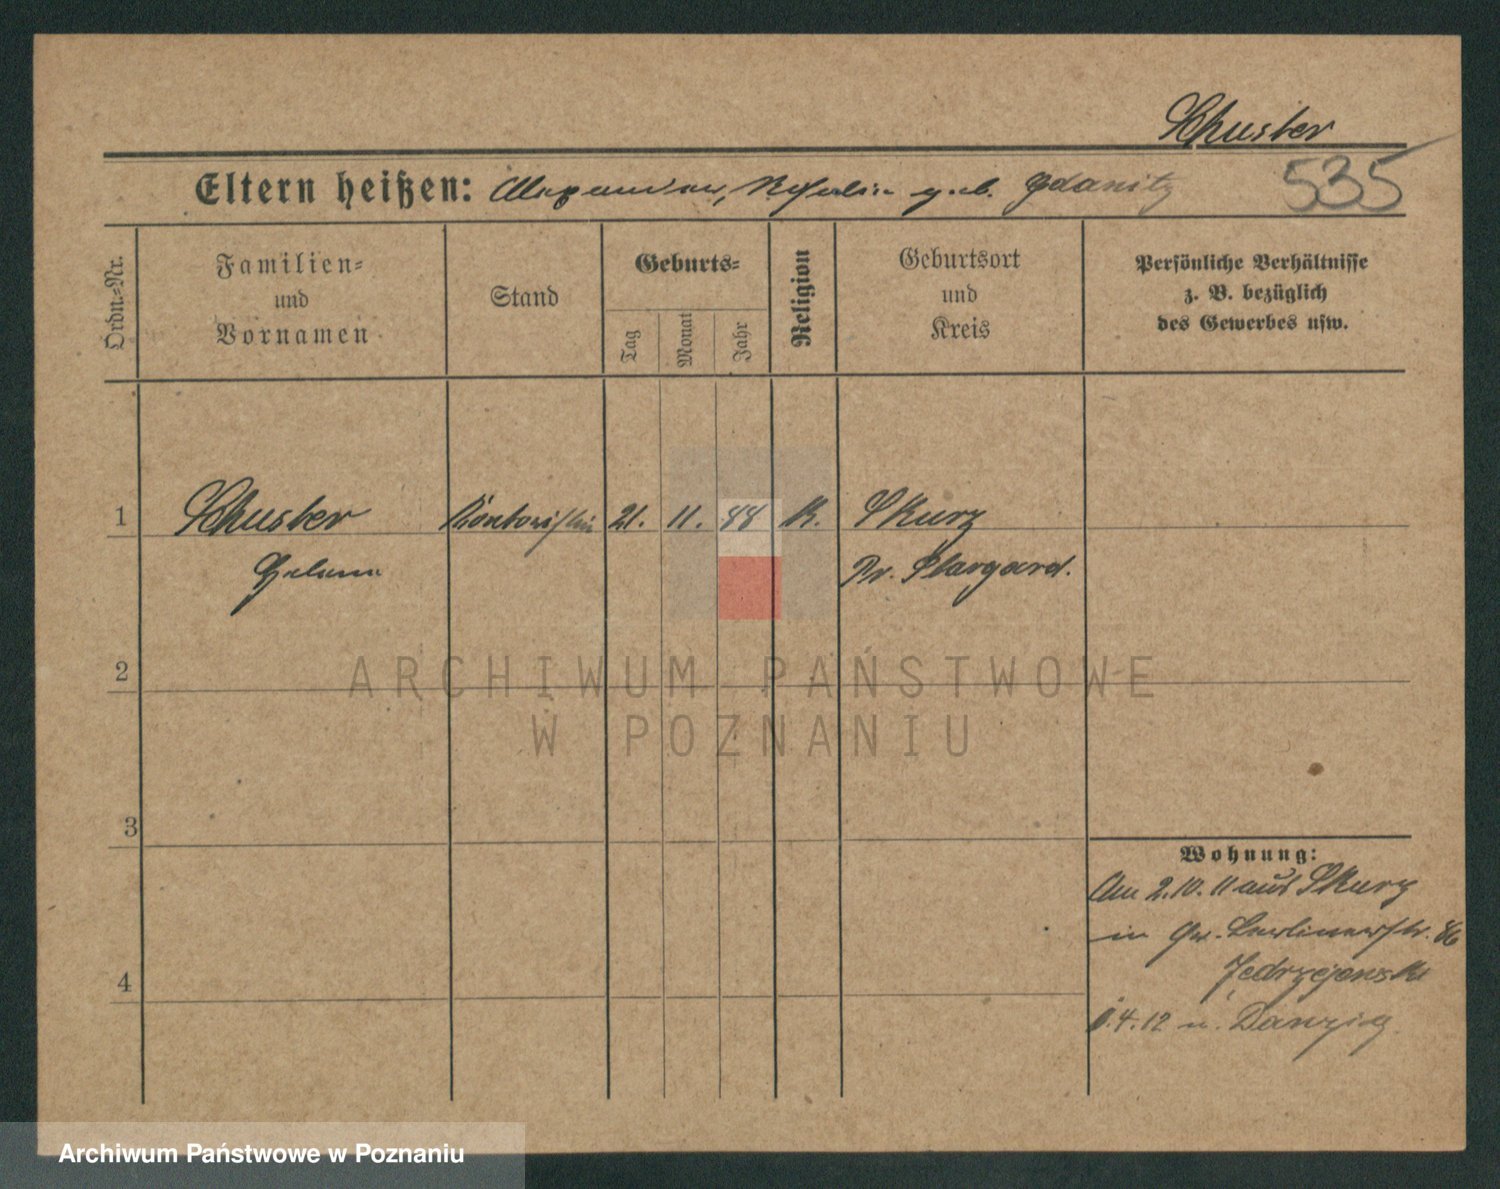 Schuster
Eltern heißen: Alexander, geb. Gdanitz
535
Ordn.-Nr.
Familien-
und
Vornamen
Stand
Geburts-
Tag
Monat
Jahr
Religion
Geburtsort
und
Kreis
Persönliche Verhältnisse
z. B. bezüglich
des Gewerbes usw.
1
Schuster Kontoristin 21. 11. 88 K. Skurz
Helene
Pr. Stargard.
2
ARCHIWUM PAŃSTWOWE
W POZNANIU
3
4
Wohnung:
Am 2.10.11 aus Skurz
in Gr. Berlinerstr. 86
Jedrzejewski
.4.12 n. Danzig.
Archiwum Państwowe w Poznaniu